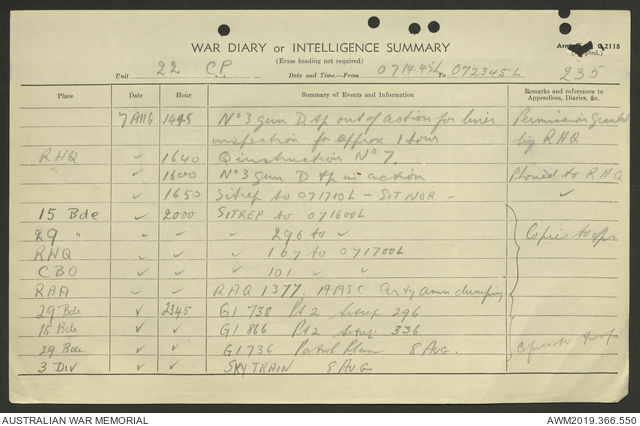 WAR DIARY or INTELLIGENCE SUMMARY
(Erase heading not required)
G 2118
Unit 22 C.P. Date and Time.—From 071445L To 072345L 235
Place Date Hour Summary of Events and Information Remarks and references to Appendices, Diaries, &c.
7 AUG 1445 No 3 gun D tp out of action for liner Permission granted
inspection for approx 1 hour by RHQ
RHQ ✓ 1640 Q instruction No 7.
✓ 1600 No 3 gun D tp in action Phoned to RHQ
✓ 1650 Sitrep to 071700L - SITNOR - ✓
15 Bde ✓ 2000 SITREP to 071600L
29 " ✓ ✓ ✓ 296 to ✓ Copies to
RHQ ✓ ✓ ✓ 167 to 071700L
CBO ✓ ✓ ✓ 101 ✓ ✓
RAA ✓ ✓ RAQ 1377. AASC Arty amn dumping
29 Bde ✓ 2345 GI 738 Pt 2 Sitrep 296
15 Bde ✓ ✓ GI 866 Pt 2 Sitrep 336
29 Bde ✓ ✓ GI 736 Patrol Plan 8 AUG. Copies to
3 DIV ✓ ✓ SKYTRAIN 8 AUG
AUSTRALIAN WAR MEMORIAL AWM2019.366.550